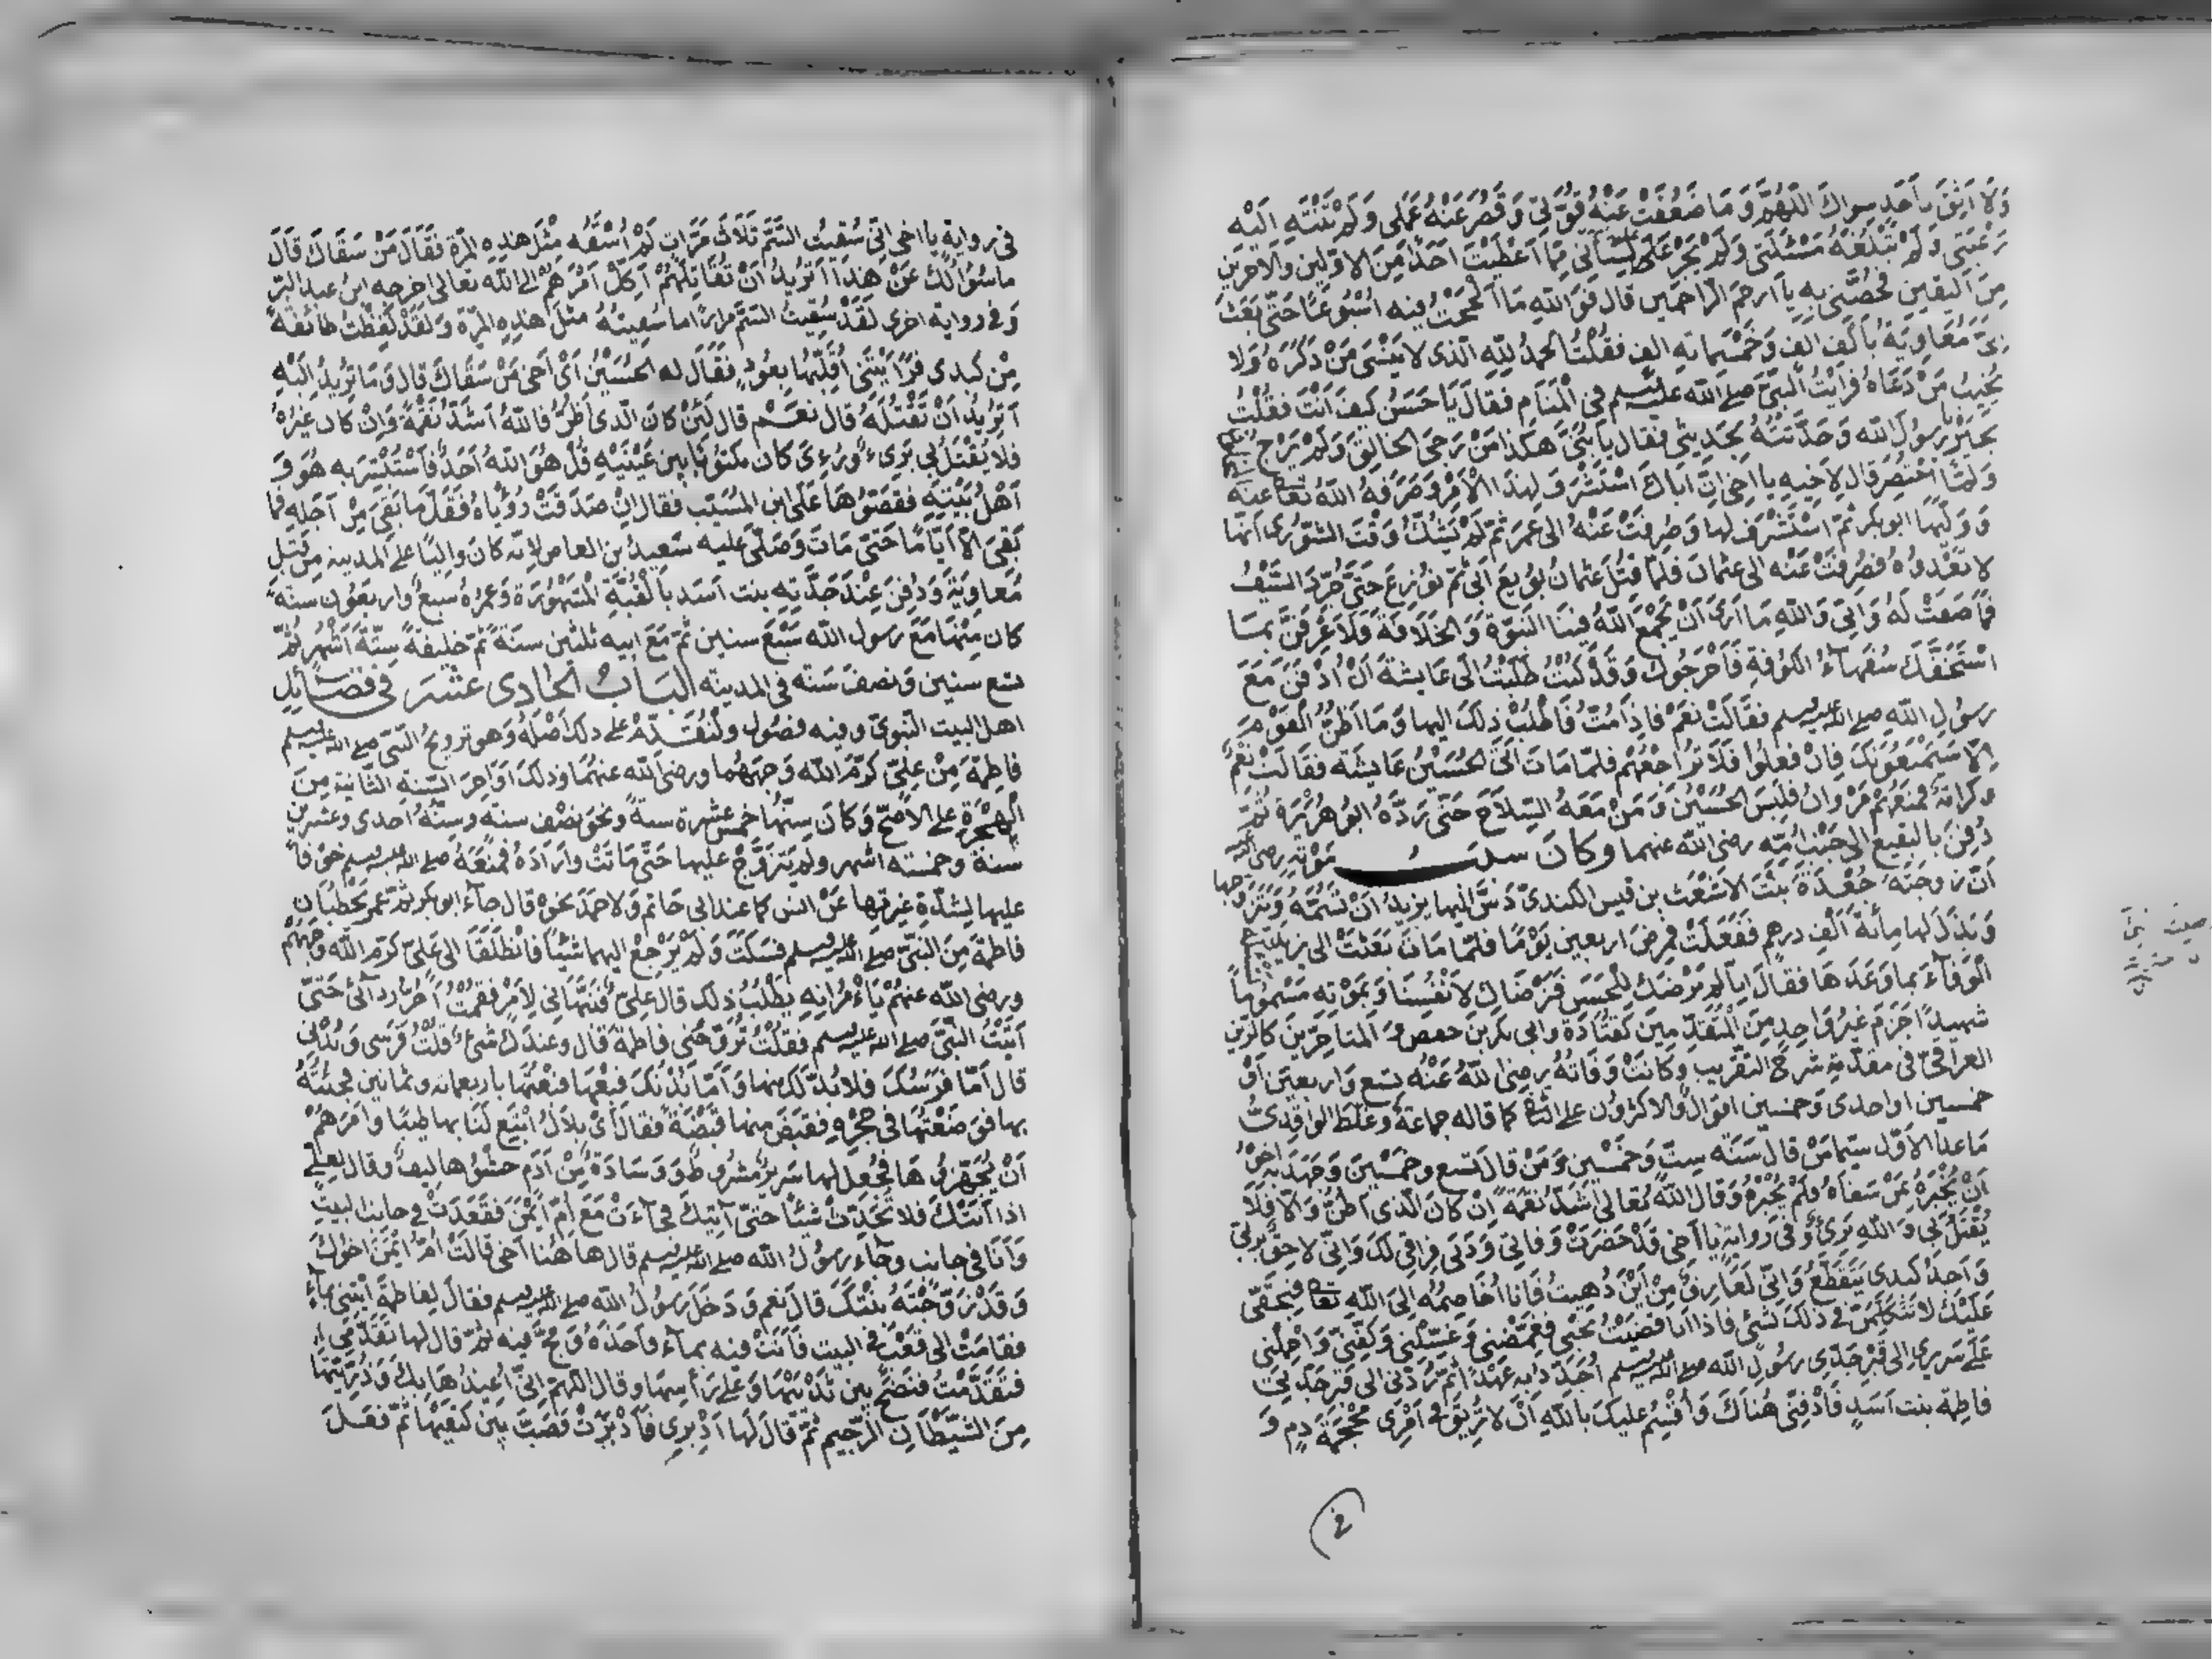 وَلَا اَثِقَ بِاَحَدٍ سِوَاكَ اللّٰهُمَّ وَمَا ضَعُفَتْ عَنْهُ قُوَّتِى وَقَصُرَ عَنْهُ عَمَلِى وَلَمْ تَنْتَهِ اِلَيْهِ
رَغْبَتِى وَلَمْ تَبْلُغْهُ مَسْئَلَتِى وَلَمْ يَجْرِ عَلٰى لِسَانِى مِمَّا اَعْطَيْتَ اَحَدًا مِنَ الاوّلين والآخرين
مِنَ اليَقين فَخُصَّنِى بِهِ يَا اَرحمَ الرّاحمين قال فَوَ اللّٰهِ مَا اَلْحَحْتُ فيه اُسْبُوعًا حَتّٰى بَعَثَ
اِلَىَّ مُعَاوِيَةُ بِاَلْفِ اَلفٍ وَخَمْسِمائةِ الفٍ فقُلْتُ الحمدُ للّٰهِ الّذى لا يَنْسٰى مَنْ ذَكَرَهُ وَلا
يُخَيِّبُ مَنْ دَعَاهُ فَرَاَيْتُ النَّبِىَّ صلى الله عليه وسلم فى الْمَنَامِ فقال يَا حَسَنُ كيفَ اَنْتَ فقُلْتُ
بِخَيْرٍ يَا رَسُولَ الله وَحَدَّثْتُهُ بِحَدِيثِى فقال يَا بُنَىَّ هكَذَا مَنْ رَجَى الخالِقَ وَلَمْ يَرْجُ
وَلَمَّا احْتُضِرَ قَالَ لِاَخِيهِ يا اخى اِنّ اَبَاكَ اسْتَشْرَفَ لِهٰذَا الْاَمْرِ فَصَرَفَهُ اللهُ تعالى عنه
وَوَلِيَهَا ابوبكر ثمّ اسْتَشْرَفَ لها وَصُرِفَتْ عَنْهُ الى عُمَرَ ثمّ لَمْ يَشُكَّ وَقْتَ الشّورى انّها
لا تعْدُوهُ فَصُرِفَتْ عَنْه الى عثمان فلمّا قُتِلَ عثمانُ بُويِعَ اَبِى ثُمّ نُوزِعَ حَتّٰى جُرِّدَ السَّيْفُ
فَمَا صَفَتْ لَهُ وَاِنّى وَاللهِ مَا اَرَى اَنْ يَجْمَعَ اللهُ فِينَا النُّبُوَّةَ وَالخِلَافَةَ فَلَا عْرِفَنَّ بِمَا
اسْتَخَفَّكَ سُفَهآءُ الكوفةِ فَاَخْرَجُوكَ وَقَدْ كُنْتُ طَلَبْتُ اِلٰى عَايِشَةَ اَنْ اُدْفَنَ مَعَ
رسُولِ اللهِ صلى الله عليه وسلم فقَالَتْ نَعَمْ فاِذَا مُتُّ فَاطْلُبْ ذٰلِكَ اليها وَمَا اَظُنُّ القَوْمَ
اِلّا سَيَمْنَعُونَكَ فَاِنْ فعلُوا فَلَا تُرَاجِعْهُمْ فلمّا مَاتَ اَتَى الحُسَيْنُ عَايشَةَ فقَالَتْ نَعَمْ
وكرامَةً فمَنَعَهُمْ مَرْوانُ فلَبِسَ الحُسَيْنُ وَمَنْ مَعَهُ السِّلَاحَ حَتّٰى رَدَّهُ ابُو هُرَيْرَةَ ثُمَّ
دُفِنَ بِالبقيع الى جَنْبِ اُمِّهِ رضى الله عنهما وكانَ سبَبُ مَوْتِهِ رضى الله
اَنّ زوجَتَهُ جُعْدَةَ بِنْتَ الاَشْعَثِ بن قيسٍ الكندىّ دَسَّ اليها يزيدُ اَنْ تسُمَّهُ وَيَتَزَوَّجَهَا
وَبَذَلَ لها مِأَةَ اَلْفِ درهم ففَعَلَتْ فمرِضَ اربعين يَوْمًا فلمّا ماتَ بَعَثَتْ الى يزيد
الوَفآءَ بما وَعَدَهَا فقال اِنّا لم نَرْضَكِ لِلْحَسَنِ فَنَرْضَاكِ لاَنْفُسِنَا وَبِمَوْتِهِ مَسْمُومًا
شهيدًا جَزَمَ غيرُ وَاحِدٍ مِنَ الْمُتَقَدِّمِينَ كقَتَادَةَ وابى بكر بن حفص وَ المتاخرين كالزين
العراقىّ فى مقدّمةِ شرح التقريب وَكانَتْ وَفاتُهُ رضى اللهُ عَنْهُ تسع وَاربعين اَوْ
خمسين او احدى وَخمسين اقوالٌ والاكثرون على الثانى كما قاله جماعةٌ وغلّط الواقدىُّ
مَا عدا الاَوّل سيّما مَنْ قال سَنَه سِتّ وَخَمْسِين وَمَنْ قال تسعٍ وخَمْسِينَ وَجَهَدَ بِهِ اخُوهُ
اَنْ يُخْبِرَهُ بمَنْ سَقَاهُ فلَمْ يُخْبِرْهُ وَقال اللهُ تعالى اَشَدُّ نقمَةً اِنْ كانَ الّذى اَظنُّ وَالّا فَلَا
يُقْتَلُ بِى وَ اللهِ بَرِىءٌ وَفى رواية يا اَخى قَدْ حَضَرَتْ وَفَاتِى وَدَنَى فِراقى لَكَ وَاِنّى لاحِقٌ بِرَبّى
وَ اَجِدُ كَبدى يَتَقَطَّعُ وَاِنّى لَعَارِفٌ مِنْ اَيْنَ دُهِيتُ فَاَنَا اُخَاصِمُهُ اِلَى اللهِ تعالى فبِحَقّى
عَلَيْكَ لا تكلّمتَ فى ذٰلِكَ بشَىْءٍ فاِذَا اَنَا قضَيْتُ نَحْبِى فقَمِّصْنِى وَغسِّلْنى وَكفِّنّى وَاحْمِلْنى
عَلٰى سَرِيرى اِلى قَبْرِ جَدّى رسُولِ الله صلى الله عليه وسلم اُجَدِّدْ به عَهْدًا ثمّ رُدّنى الى قبرِ جَدَّتى
فاطِمَةَ بنت اَسَدٍ فَادْفِنّى هُنَاكَ وَاُقْسِمُ عليكَ بِاللهِ اَنْ لا تُرِيقَ فى اَمْرِى مِحْجَمَةَ دَمٍ وَ
فى رواية يا اخى انّى سُقِيتُ السَّمَّ ثلَاثَ مَرّاتٍ لَمْ اُسْقَهُ مِثْلَ هٰذِهِ المرّة فقَالَ مَنْ سَقَاكَ قَالَ
ما سُؤالُكَ عَنْ هٰذَا اَتُرِيدُ اَنْ تُقَاتِلَهُمْ اَكِلُ اَمْرَهُمْ الى الله تعالى اخرجه ابنُ عبد البرّ
وَفى رواية اخرى لَقَدْ سُقِيتُ السَّمَّ مرارًا ما سُقِيتُهُ مثل هٰذِهِ المرّة وَلقَدْ لفظتُ طائفةً
مِنْ كبدى فرَاَيْتُنِى اُقَلِّبُهَا بِعُودٍ فقَالَ له الحُسَيْنُ اَىْ اَخى مَنْ سَقَاكَ قال وَمَا تُرِيدُ اِلَيْهِ
اَتُرِيدُ اَنْ تَقْتُلَهُ قال نعَمْ قال لَئِنْ كانَ الّذى اَظُنُّ فاللهُ اَشَدُّ نَقْمةً وَاِنْ كان غيْرُهُ
فلا يُقْتَلُ بى بَرِىءٌ وَرُءِىَ كان مكتوبًا بين عَيْنَيْهِ قُلْ هُوَ اللهُ اَحَدٌ فَاسْتَبْشَرَ بِهِ هُوَ وَ
اَهْلُ بَيْتِهِ فقَصّوْهَا عَلَى ابنِ المُسَيّب فقال اِنْ صَدَقَتْ رُؤْيَاهُ فَقَلّ مَا بَقِىَ مِنْ اَجَلِهِ فما
بَقِىَ اِلّا اَيّامًا حَتّى مَاتَ وَصَلّى عليه سَعِيدُ بن العاص لِاَنّه كانَ واليًا على المدينة مِن قِبَل
مُعَاوِيَةَ وَدُفِنَ عِنْدَ جَدَّتِهِ بنت اَسَد بالقُبّةِ المَشْهُورَةِ وَعمرُهُ سبعٌ واربعُونَ سنَةً
كان مِنْهَا مَعَ رسول الله سَبْعَ سنين ثمّ مَعَ ابيه ثلثين سنَةً ثمّ خليفةً سِتّةَ اَشْهُرٍ ثمّ
تسع سنين وَنصف سَنَه فى المدينه البَابُ الحَادِى عَشَرَ فى فضائِل
اهل البيت النّبوىّ وفيه فصُول ولنُقَدّمْ على ذلكَ اَصْلَهُ وَهو تزويجُ النّبىّ صلى الله عليه وسلم
فاطِمَةَ مِنْ عَلِىّ كرّمَ اللهُ وَجهَهُما ورضى الله عنهُمَا وَذلك اَوَاخِرَ السّنةِ الثّانيةِ مِنَ
الهِجْرَةِ على الاَصَحِّ وَكانَ سِنُّهَا خمسَ عشرةَ سنةً وَنحوَ نصْفِ سنةٍ وَسِنّهُ احدى وعشرين
سنةً وخمسة اشهر ولم يتزوّجْ عليها حَتّى مَاتَتْ وارَادَهُ فمنَعَهُ صلى الله عليه وسلم خوفًا
عليها لِشدّةِ غيرتِها عَنْ انس كما عند ابى حاتم وَلاحمدَ نحوه قال جآءَ ابوبكر ثمّ عمر يخطُبَانِ
فاطمةَ مِنَ النّبىّ صلى الله عليه وسلم فسَكَتَ وَلَمْ يَرْجِعْ اليهما شيْئًا فَانْطَلَقَا الى عَلىّ كرّم اللهُ وَجهَهُ
ورضى الله عنهُمْ يَأمُرَانِهِ بِطَلَبِ ذلك قال عَلِىٌّ فَنَبَّهَانِى لِاَمْرٍ فقُمْتُ اَجُرُّ رِدَآئى حَتّى
اَتَيْتُ النّبىَّ صلى الله عليه وسلم فقلْتُ تُزَوّجُنِى فاطمةَ قالَ وعندكَ شَىْءٌ قُلْتُ فَرَسى وَبُدْنى
قال اَمّا فَرَسُكَ فلا بُدَّ لكَ منها وَاَمّا بُدْنُكَ فبِعْهَا فبعْتُهَا باربعمائة وثمانين فجئتُهُ
بها فوَضَعْتُهَا فى حجْرِهِ فقبَضَ منها قَبْضَةً فقالَ اَىْ بِلَالُ ابْتَعْ لَنَا بها طِيبًا وَامَرَهُمْ
اَنْ يُجَهّزُوهَا فجُعِلَ لها سَرِيرٌ مَشْرُوطٌ وَوِسَادَةٌ مِنْ اَدَمٍ حَشْوُها ليفٌ وقال لِعلىّ
اذا اَتَتْكَ فلا تُحَدِثْ شَيْئًا حَتّى آتِيكَ فجآءَتْ مَعَ اُمّ اَيْمَنَ فقَعَدَتْ فى جانب البيتِ
وَاَنَا فى جانب وَجَاءَ رسُولُ الله صلى الله عليه وسلم قال هَاهُنَا اَخى قالَتْ اُمُّ اَيْمَنَ اخُوكَ
وَقَدْ زَوّجْتَهُ بِنْتَكَ قالَ نعَمْ وَدَخَلَ رسُولُ الله صلى الله عليه وسلم فقالَ لِفاطمةَ ايْتِنِى بِمآءٍ
فقامَتْ اِلى قَعْبٍ فى البيت فَاَتَتْ فيه بِمآءٍ فاَخَذَهُ وَمَجَّ فيه ثمّ قال لها تقدّمِى
فتقَدّمَتْ فنَضَحَ بين ثدْيَيْهَا وَعلى رَأسِهَا وقال اللّهُمّ اِنّى اُعِيذُهَا بِكَ وَذُرّيّتَهَا
مِنَ الشّيْطَانِ الرّجِيم ثمّ قَالَ لَهَا اَدْبِرى فَاَدْبَرَتْ فَصَبَّ بين كتفَيْهَا ثمّ فعَلَ